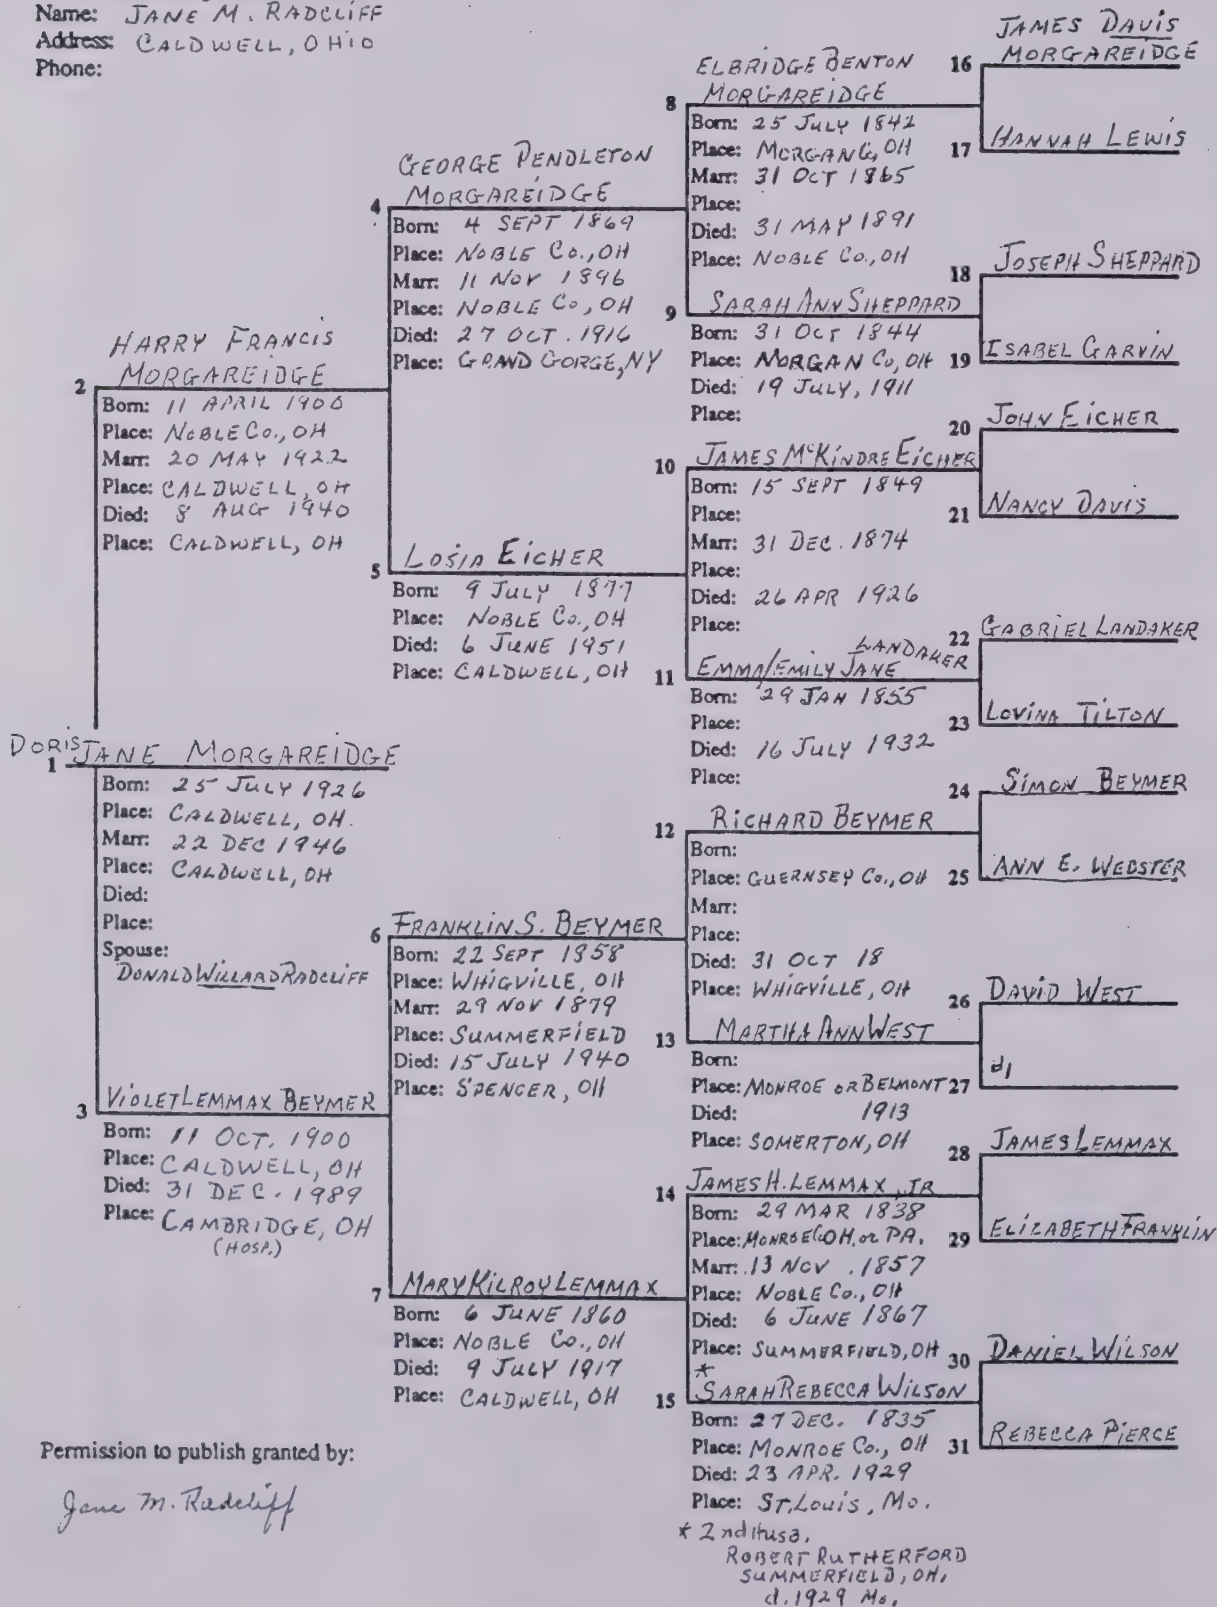 Name: JANE M. RADCLIFF
Address: CALDWELL, OHIO
Phone:
DORIS JANE MORGAREIDGE
1
Born: 25 JULY 1926
Place: CALDWELL, OH.
Marr: 22 DEC 1946
Place: CALDWELL, OH
Died:
Place:
Spouse:
DONALD WILLARD RADCLIFF
HARRY FRANCIS
MORGAREIDGE
2
Born: 11 APRIL 1900
Place: NOBLE Co., OH
Marr: 20 MAY 1922
Place: CALDWELL, OH
Died: 8 AUG 1940
Place: CALDWELL, OH
3 VIOLET LEMMAX BEYMER
Born: 11 OCT. 1900
Place: CALDWELL, OH
Died: 31 DEC. 1989
Place: CAMBRIDGE, OH
(HOSP.)
GEORGE PENDLETON
MORGAREIDGE
4
Born: 4 SEPT 1869
Place: NOBLE Co., OH
Marr: 11 NOV 1896
Place: NOBLE Co, OH
Died: 27 OCT. 1916
Place: GRAND GORGE, NY
5 LOSIA EICHER
Born: 9 JULY 1877
Place: NOBLE Co., OH
Died: 6 JUNE 1951
Place: CALDWELL, OH
6 FRANKLIN S. BEYMER
Born: 22 SEPT 1858
Place: WHIGVILLE, OH
Marr: 29 NOV 1879
Place: SUMMERFIELD
Died: 15 JULY 1940
Place: SPENCER, OH
7 MARY KILROY LEMMAX
Born: 6 JUNE 1860
Place: NOBLE Co., OH
Died: 9 JULY 1917
Place: CALDWELL, OH
ELBRIDGE BENTON
8 MORGAREIDGE
Born: 25 JULY 1842
Place: MORGAN Co, OH
Marr: 31 OCT 1865
Place:
Died: 31 MAY 1891
Place: NOBLE Co., OH
9 SARAH ANN SHEPPARD
Born: 31 OCT 1844
Place: MORGAN Co, OH
Died: 19 JULY, 1911
Place:
10 JAMES McKINDRE EICHER
Born: 15 SEPT 1849
Place:
Marr: 31 DEC. 1874
Place:
Died: 26 APR 1926
Place:
11 EMMA/EMILY JANE LANDAKER
Born: 29 JAN 1855
Place:
Died: 16 JULY 1932
Place:
12 RICHARD BEYMER
Born:
Place: GUERNSEY Co., OH
Marr:
Place:
Died: 31 OCT 18
Place: WHIGVILLE, OH
13 MARTHA ANN WEST
Born:
Place: MONROE OR BELMONT
Died: 1913
Place: SOMERTON, OH
14 JAMES H. LEMMAX, JR
Born: 29 MAR 1838
Place: MONROE Co OH. or PA.
Marr: 13 NOV. 1857
Place: NOBLE Co., OH
Died: 6 JUNE 1867
Place: SUMMERFIELD, OH
*
15 SARAH REBECCA WILSON
Born: 27 DEC. 1835
Place: MONROE Co., OH
Died: 23 APR. 1929
Place: ST. LOUIS, Mo.
* 2nd HUSB.
ROBERT RUTHERFORD
SUMMERFIELD, OH,
d. 1929 Mo.
JAMES DAVIS
16 MORGAREIDGE
17 HANNAH LEWIS
18 JOSEPH SHEPPARD
19 ISABEL GARVIN
20 JOHN EICHER
21 NANCY DAVIS
22 GABRIEL LANDAKER
23 LOVINA TILTON
24 SIMON BEYMER
25 ANN E. WEBSTER
26 DAVID WEST
27
28 JAMES LEMMAX
29 ELIZABETH FRANKLIN
30 DANIEL WILSON
31 REBECCA PIERCE
Permission to publish granted by:
Jane M. Radcliff